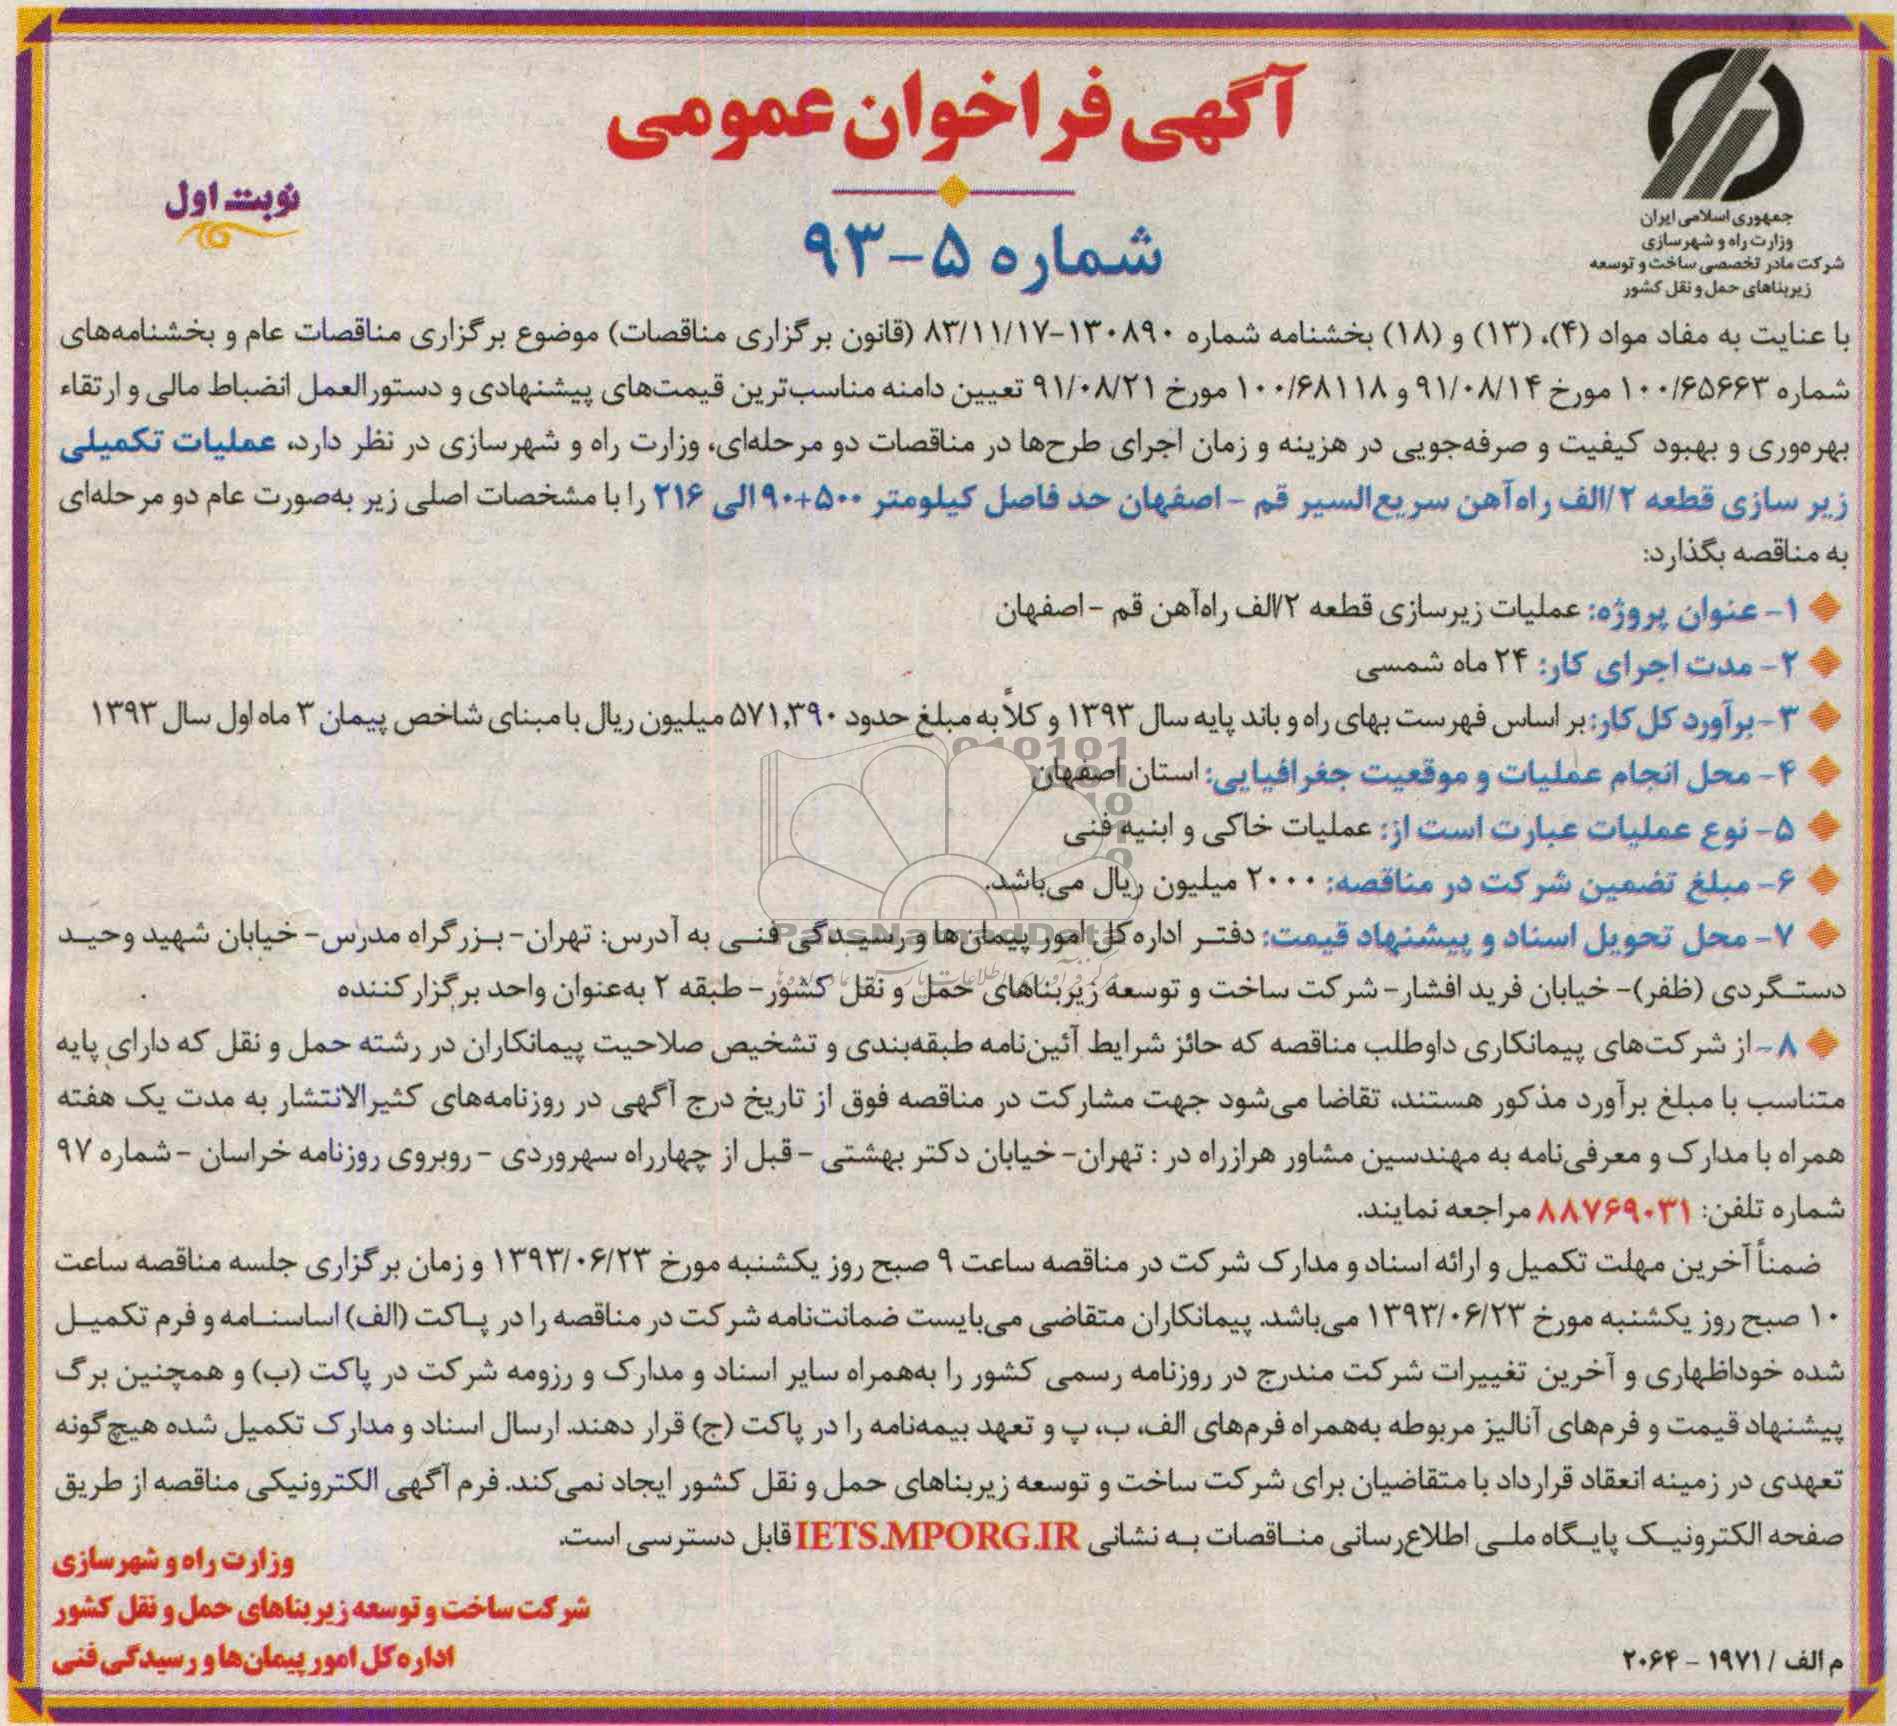 جمهوری اسلامی ایران
وزارت راه و شهرسازی
شرکت مادر تخصصی ساخت و توسعه
زیربناهای حمل و نقل کشور
آگهی فراخوان عمومی
نوبت اول
شماره ۵-۹۳
با عنایت به مفاد مواد (۴)، (۱۳) و (۱۸) بخشنامه شماره ۱۳۰۸۹۰-۸۳/۱۱/۱۷ (قانون برگزاری مناقصات) موضوع برگزاری مناقصات عام و بخشنامه‌های
شماره ۱۰۰/۶۵۶۶۳ مورخ ۹۱/۰۸/۱۴ و ۱۰۰/۶۸۱۱۸ مورخ ۹۱/۰۸/۲۱ تعیین دامنه مناسب‌ترین قیمت‌های پیشنهادی و دستورالعمل انضباط مالی و ارتقاء
بهره‌وری و بهبود کیفیت و صرفه‌جویی در هزینه و زمان اجرای طرح‌ها در مناقصات دو مرحله‌ای، وزارت راه و شهرسازی در نظر دارد، عملیات تکمیلی
زیر سازی قطعه ۲/الف راه‌آهن سریع‌السیر قم - اصفهان حد فاصل کیلومتر ۵۰۰+۹۰ الی ۲۱۶ را با مشخصات اصلی زیر به‌صورت عام دو مرحله‌ای
به مناقصه بگذارد:
۱- عنوان پروژه: عملیات زیرسازی قطعه ۲/الف راه‌آهن قم - اصفهان
۲- مدت اجرای کار: ۲۴ ماه شمسی
۳- برآورد کل کار: بر اساس فهرست بهای راه و باند پایه سال ۱۳۹۳ و کلاً به مبلغ حدود ۵۷۱,۳۹۰ میلیون ریال با مبنای شاخص پیمان ۳ ماه اول سال ۱۳۹۳
۴- محل انجام عملیات و موقعیت جغرافیایی: استان اصفهان
۵- نوع عملیات عبارت است از: عملیات خاکی و ابنیه فنی
۶- مبلغ تضمین شرکت در مناقصه: ۲۰۰۰ میلیون ریال می‌باشد.
۷- محل تحویل اسناد و پیشنهاد قیمت: دفتر اداره‌کل امور پیمان‌ها و رسیدگی فنی به آدرس: تهران- بزرگراه مدرس- خیابان شهید وحید
دستگردی (ظفر)- خیابان فرید افشار- شرکت ساخت و توسعه زیربناهای حمل و نقل کشور- طبقه ۲ به‌عنوان واحد برگزارکننده
۸- از شرکت‌های پیمانکاری داوطلب مناقصه که حائز شرایط آئین‌نامه طبقه‌بندی و تشخیص صلاحیت پیمانکاران در رشته حمل و نقل که دارای پایه
متناسب با مبلغ برآورد مذکور هستند، تقاضا می‌شود جهت مشارکت در مناقصه فوق از تاریخ درج آگهی در روزنامه‌های کثیرالانتشار به مدت یک هفته
همراه با مدارک و معرفی‌نامه به مهندسین مشاور هرازراه در : تهران- خیابان دکتر بهشتی - قبل از چهارراه سهروردی - روبروی روزنامه خراسان - شماره ۹۷
شماره تلفن: ۸۸۷۶۹۰۳۱ مراجعه نمایند.
ضمناً آخرین مهلت تکمیل و ارائه اسناد و مدارک شرکت در مناقصه ساعت ۹ صبح روز یکشنبه مورخ ۱۳۹۳/۰۶/۲۳ و زمان برگزاری جلسه مناقصه ساعت
۱۰ صبح روز یکشنبه مورخ ۱۳۹۳/۰۶/۲۳ می‌باشد. پیمانکاران متقاضی می‌بایست ضمانت‌نامه شرکت در مناقصه را در پاکت (الف) اساسنامه و فرم تکمیل
شده خوداظهاری و آخرین تغییرات شرکت مندرج در روزنامه رسمی کشور را به‌همراه سایر اسناد و مدارک و رزومه شرکت در پاکت (ب) و همچنین برگ
پیشنهاد قیمت و فرم‌های آنالیز مربوطه به‌همراه فرم‌های الف، ب، پ و تعهد بیمه‌نامه را در پاکت (ج) قرار دهند. ارسال اسناد و مدارک تکمیل شده هیچ‌گونه
تعهدی در زمینه انعقاد قرارداد با متقاضیان برای شرکت ساخت و توسعه زیربناهای حمل و نقل کشور ایجاد نمی‌کند. فرم آگهی الکترونیکی مناقصه از طریق
صفحه الکترونیک پایگاه ملی اطلاع‌رسانی مناقصات به نشانی IETS.MPORG.IR قابل دسترسی است.
وزارت راه و شهرسازی
شرکت ساخت و توسعه زیربناهای حمل و نقل کشور
اداره‌کل امور پیمان‌ها و رسیدگی فنی
م الف / ۱۹۷۱ - ۲۰۶۴